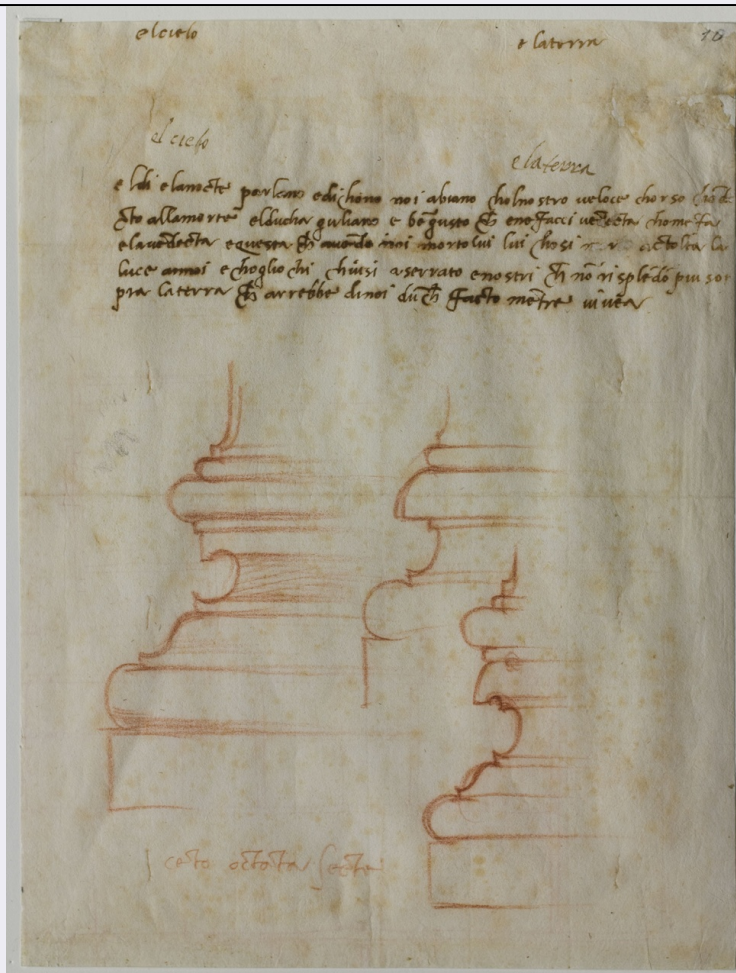 el cielo e la terra
el cielo e la terra
el di e la nocte parlano e dichono noi abiano chol nostro veloce chorso chōd
octo alla morte el ducha guliano e bē gusto ch̄ e ne facci vēdecta chome fa
e la vēdecta e questa ch̄ avēdo noi morto lui lui chosi tolta la
luce a noi e chogli ochi chiusi a serrato e nostri ch̄ nō risplēdō piu so
pra la terra ch̄ arrebbe di noi dūch̄ facto mētre vivea
cēto octāta secte